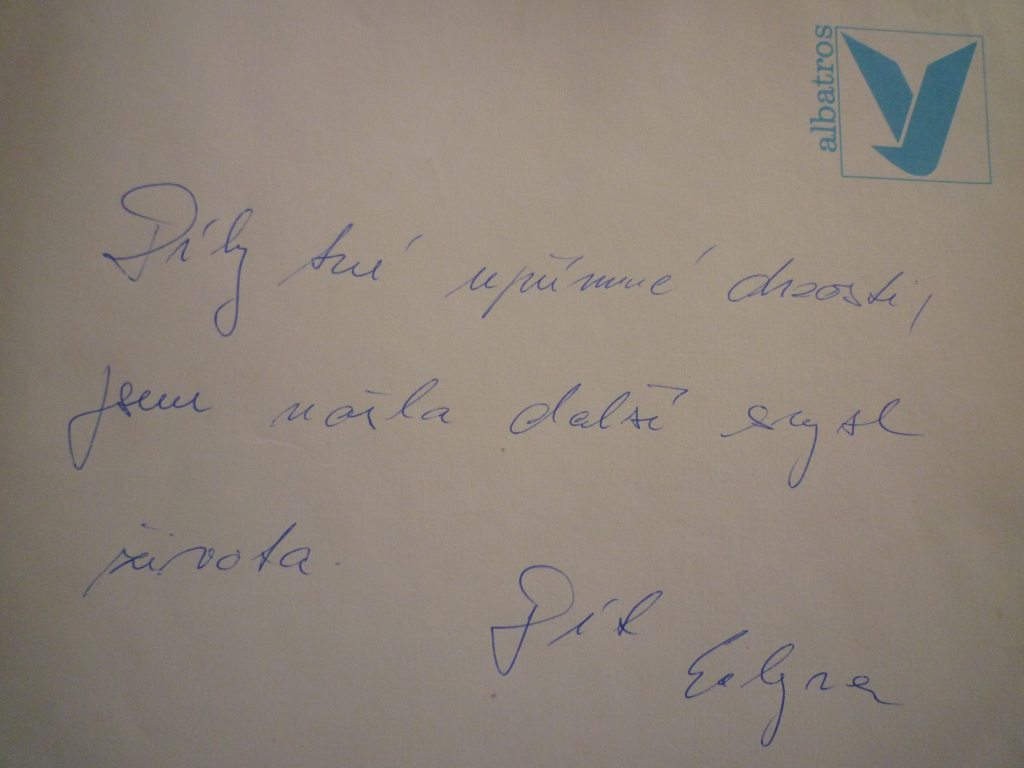 albatros
Díky tvé upřímné drzosti,
jsem našla další smysl
života.
Dík